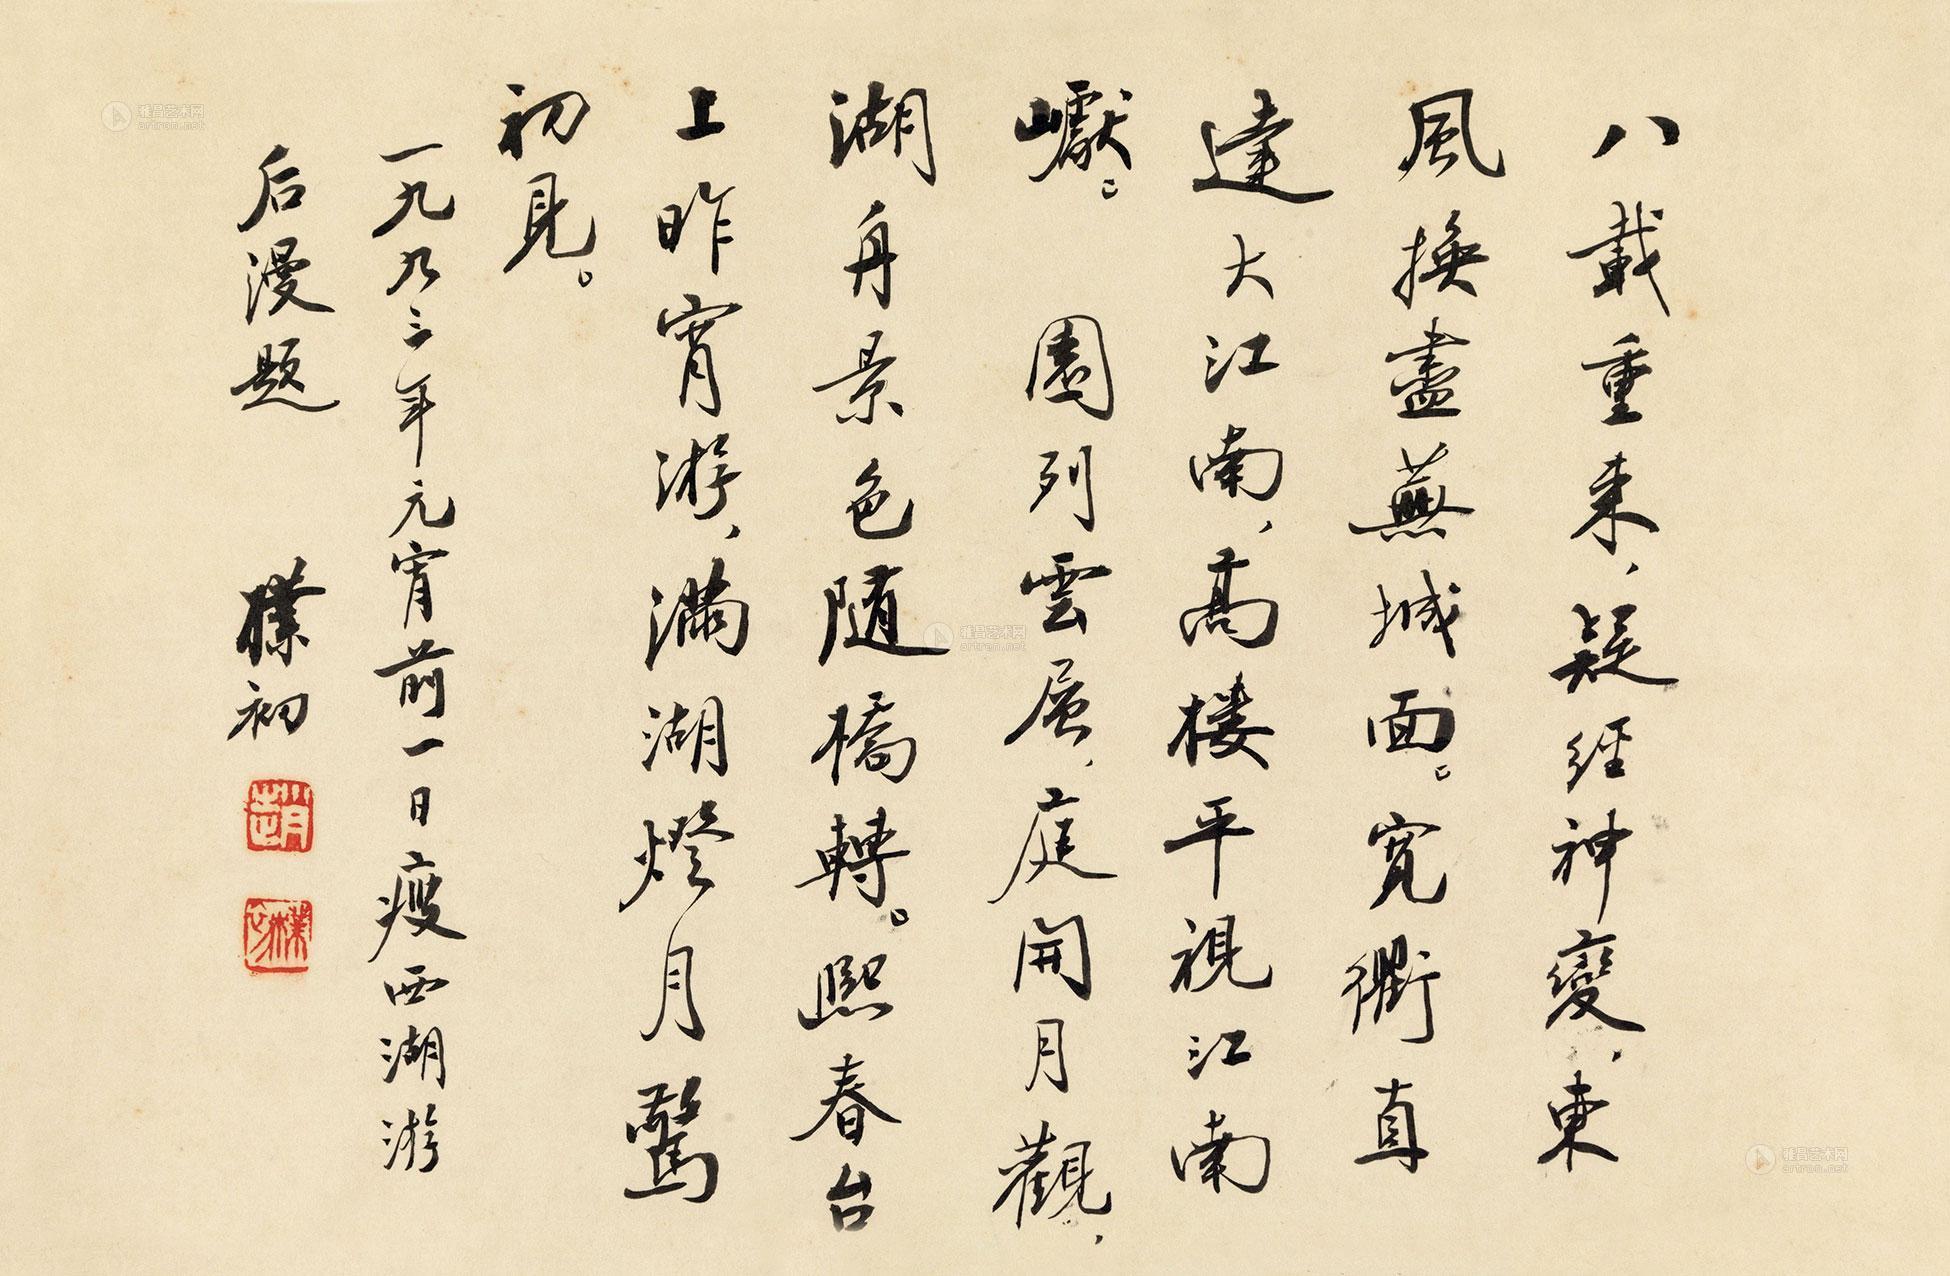 八載重来，疑經神變，東
風換盡蕪城面。寬衢直
達大江南，髙楼平視江南
巘。 園列雲層，庭開月觀，
湖舟景色随橋轉。熙春台
上昨宵游，滿湖燈月驚
初見。
一九九三年元宵前一日瘦西湖游
后漫题 樸初
趙
樸初
雅昌艺术网
artron.net
雅昌艺术网
artron.net
雅昌艺术网
artron.net